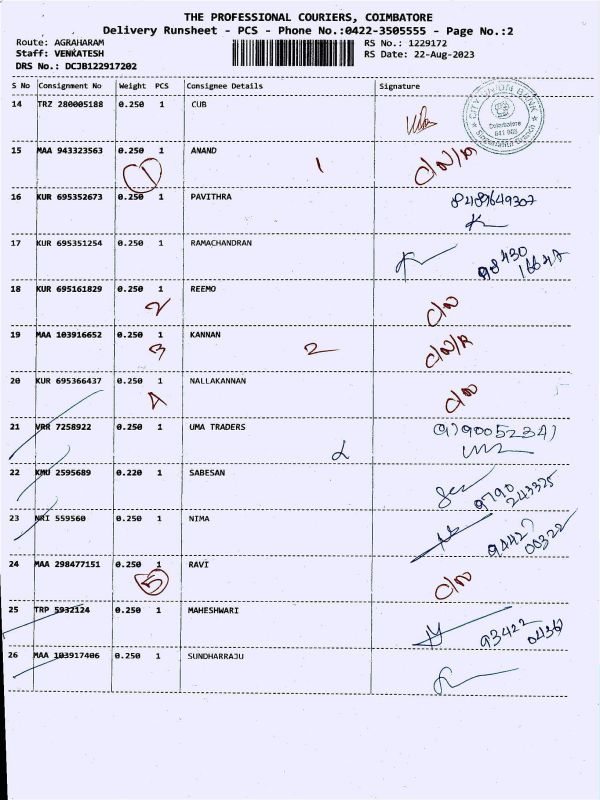 THE PROFESSIONAL COURIERS, COIMBATORE
Delivery Runsheet - PCS - Phone No.:0422-3505555 - Page No.:2
Route: AGRAHARAM RS No.: 1229172
Staff: VENKATESH RS Date: 22-Aug-2023
DRS No.: DCJB122917202
S No Consignment No Weight PCS Consignee Details Signature
14 TRZ 280005188 0.250 1 CUB
CITY UNION BANK
Coimbatore
15 MAA 943323563 0.250 1 ANAND
1 1 D/N/R
16 KUR 695352673 0.250 1 PAVITHRA
8489649307
17 KUR 695351254 0.250 1 RAMACHANDRAN
98430
16647
18 KUR 695161829 0.250 1 REEMO
2 D/N
19 MAA 103916652 0.250 1 KANNAN
3 2 D/N/R
20 KUR 695366437 0.250 1 NALLAKANNAN
4 D/N
21 VRR 7258922 0.250 1 UMA TRADERS
9790052341
22 KMU 2595689 0.220 1 SABESAN
9790
243325
23 NRI 559560 0.250 1 NIMA
94427
00322
24 MAA 298477151 0.250 1 RAVI
5 D/N
25 TRP 5932124 0.250 1 MAHESHWARI
93422
26 MAA 103917406 0.250 1 SUNDHARRAJU